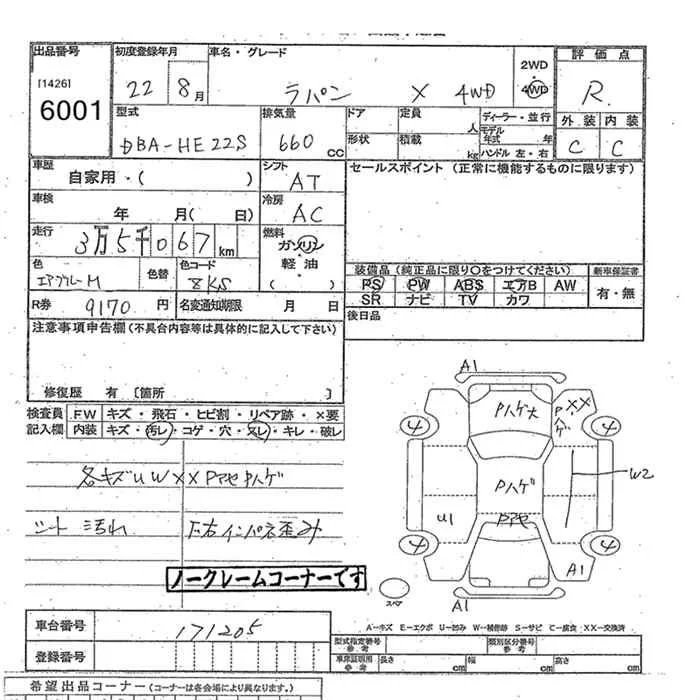 出品番号 初度登録年月 車名・グレード 2WD・4WD 評価点
[1426] 6001 22 8月 ラパン X 4WD R
外装 内装
C C
型式 排気量 ドア 定員 人 ディーラー・並行
DBA-HE22S 660 CC 形状 積載 kg モデル年式 年
ハンドル 左・右
車歴 シフト セールスポイント (正常に機能するものに限ります)
自家用・( ) AT
車検 冷房
年 月( 日) AC
走行 燃料
3万5千067km ガソリン・軽油・( )
色 色替 色コード 装備品 (純正品に限り○をつけてください) 新車保証書
ZKS PS PW ABS エアB AW 有・無
SR ナビ TV カワ
R券 9170円 名変通知期限 月 日 後日品
注意事項申告欄(不具合内容等は具体的に記入して下さい)
修復歴 有〔箇所 〕
検査員 F.W キズ・飛石・ヒビ割・リペア跡・×要
記入欄 内装 キズ・汚レ・コゲ・穴・スレ・キレ・破レ
各キズUWXXPアセPハゲ
シート汚れ 左右インパネ歪み
ノークレームコーナーです
A1
Pハゲ大 Pハゲ XX
4 4
Pハゲ W2
U1 Pアセ
4 4
A1
スペア A1
A-キズ E-エクボ U-凹み W-補修跡 S-サビ C-腐食 XX-交換済
車台番号 171205
登録番号
型式指定番号 類別区分番号
参考 参考
車庫証明用 参考 長さ cm 幅 cm 高さ cm
希望出品コーナー(コーナーは各会場により異なります。)